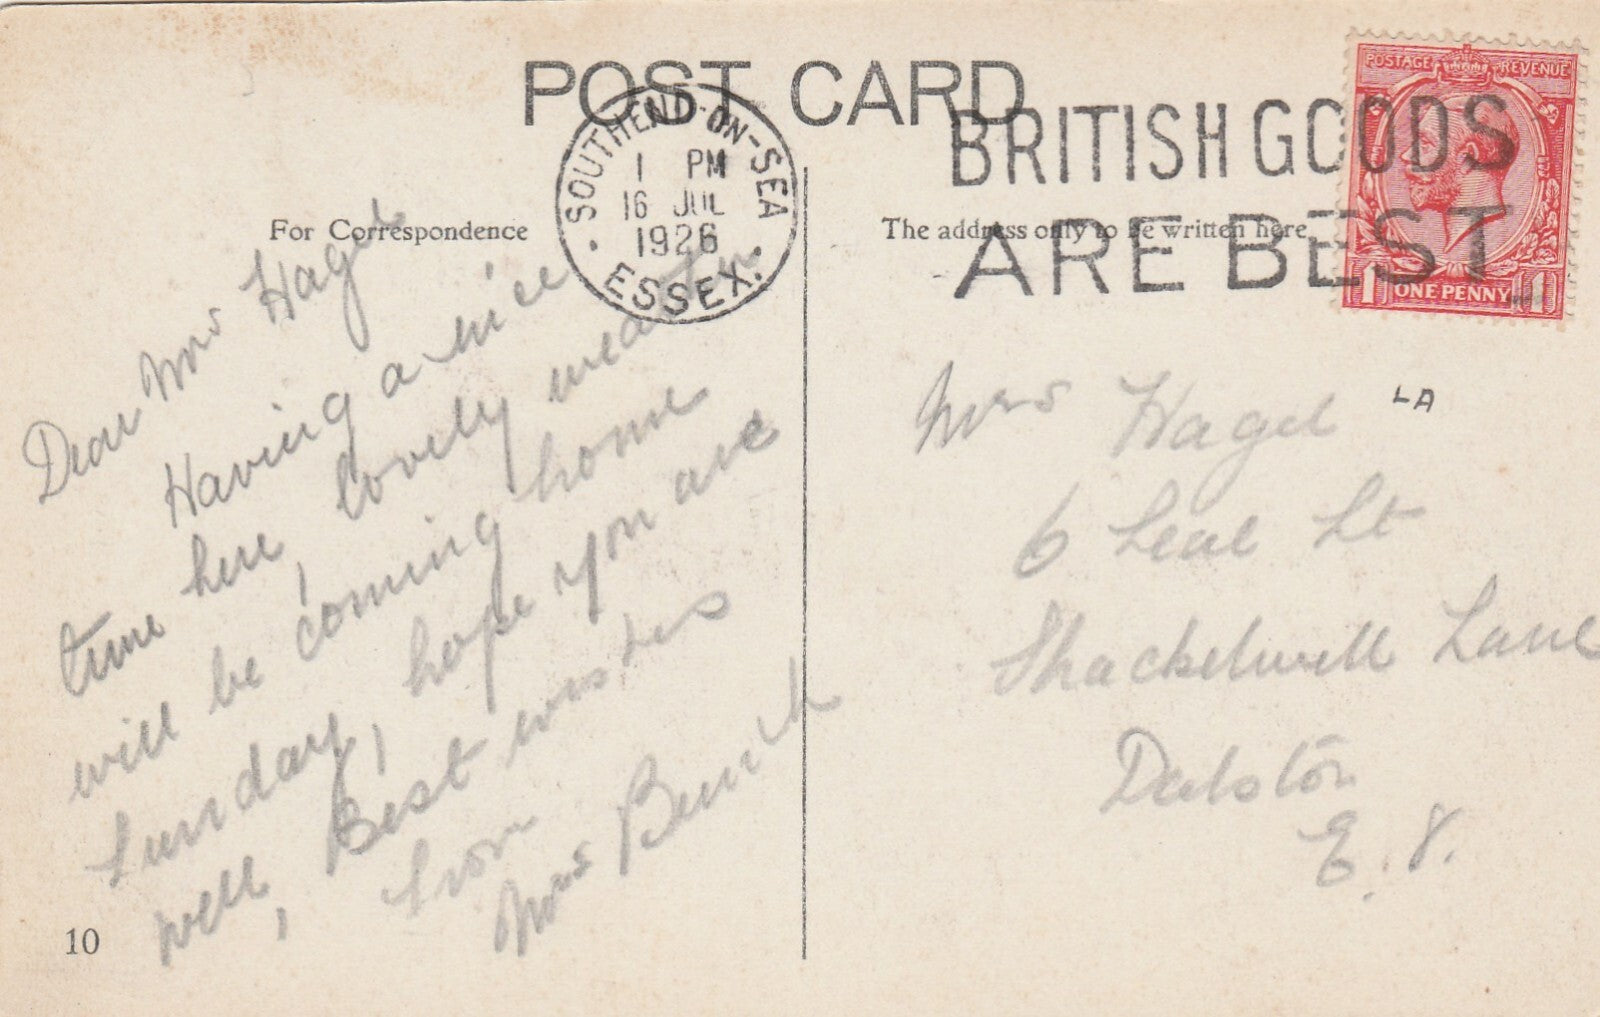 POST CARD
SOUTHEND-ON-SEA
1 PM
16 JUL
1926
ESSEX.
BRITISH GOODS
ARE BEST
POSTAGE REVENUE
1 ONE PENNY 1
For Correspondence
The address only to be written here
Dear Mrs Hagel
Having a nice
time here, lovely weather
will be coming home
Sunday, hope you are
well, Best wishes
from
Mrs
10
Mrs Hagel
LA
6 St
Shackelwell Lane
Dalston
E. 8.